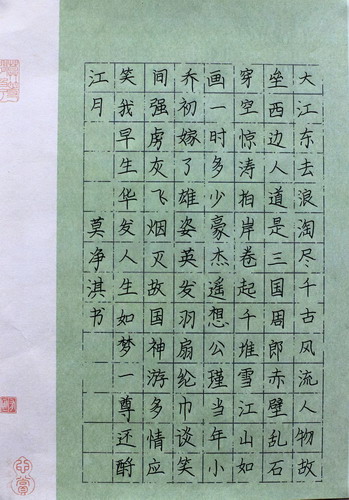 大江东去浪淘尽千古风流人物故
垒西边人道是三国周郎赤壁乱石
穿空惊涛拍岸卷起千堆雪江山如
画一时多少豪杰遥想公瑾当年小
乔初嫁了雄姿英发羽扇纶巾谈笑
间强虏灰飞烟灭故国神游多情应
笑我早生华发人生如梦一尊还酹
江月 莫净淇书